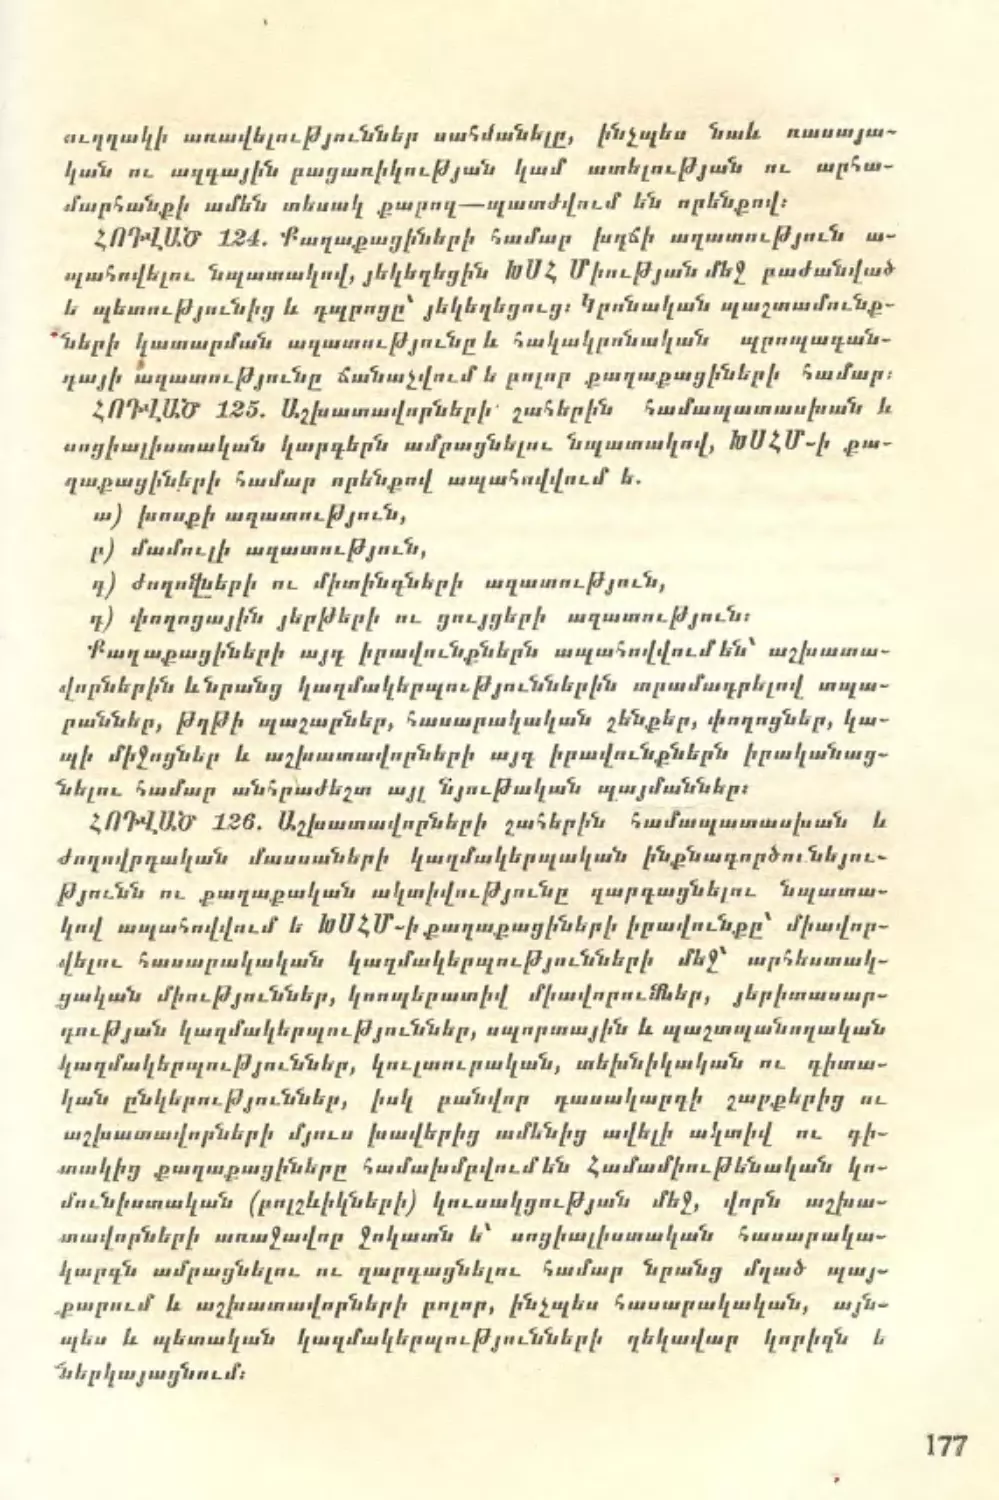 ուղղակի առավելություններ սահմանելը, ինչպես նաև ռասայա-
կան ու ազգային բացառիկության կամ ատելության ու արհա-
մարհանքի ամեն տեսակ քարոզ—պատժվում են որենքով։
ՀՈԴՎԱԾ 124. Քաղաքացիների համար խղճի ազատություն ա-
պահովելու նպատակով, յեկեղեցին ԽՍՀ Միության մեջ բաժանված
է պետությունից և դպրոցը՝ յեկեղեցուց։ Կրոնական պաշտամունք-
ների կատարման ազատությունը և հակակրոնական պրոպագան-
դայի ազատությունը ճանաչվում ե բոլոր քաղաքացիների համար։
ՀՈԴՎԱԾ 125. Աշխատավորների շահերին համապատասխան և
սոցիալիստական կարգերն ամրացնելու նպատակով, ԽՍՀՄ-ի քա-
ղաքացիների համար որենքով ապահովվում ե.
ա) խոսքի ազատություն,
բ) մամուլի ազատություն,
գ) ժողովների ու միտինգների ազատություն,
դ) փողոցային յերթերի ու ցույցերի ազատություն։
Քաղաքացիների այդ իրավունքներն ապահովվում են՝ աշխատա-
վորներին և նրանց կազմակերպություններին տրամադրելով տպա-
րաններ, թղթի պաշարներ, հասարակական շենքեր, փողոցներ, կա-
պի միջոցներ և աշխատավորների այդ իրավունքներն իրականաց-
նելու համար անհրաժեշտ այլ նյութական պայմաններ։
ՀՈԴՎԱԾ 126. Աշխատավորների շահերին համապատասխան և
ժողովրդական մասսաների կազմակերպական ինքնագործունեյու-
թյունն ու քաղաքական ակտիվությունը զարգացնելու նպատա-
կով ապահովվում ե ԽՍՀՄ-ի քաղաքացիների իրավունքը՝ միավոր-
վելու հասարակական կազմակերպությունների մեջ՝ արհեստակ-
ցական միություններ, կոոպերատիվ միավորումներ, յերիտասար-
դության կազմակերպություններ, սպորտային և պաշտպանողական
կազմակերպություններ, կուլտուրական, տեխնիկական ու գիտա-
կան ընկերություններ, իսկ բանվոր դասակարգի շարքերից ու
աշխատավորների մյուս խավերից ամենից ավելի ակտիվ ու գի-
տակից քաղաքացիները համախմբվում են Համամիութենական կո-
մունիստական (բոլշևիկների) կուսակցության մեջ, վորն աշխա-
տավորների առաջավոր ջոկատն ե՝ սոցիալիստական հասարակա-
կարգն ամրացնելու ու զարգացնելու համար նրանց մղած պայ-
քարում և աշխատավորների բոլոր, ինչպես հասարակական, այն-
պես և պետական կազմակերպությունների ղեկավար կորիզն ե
ներկայացնում։
177